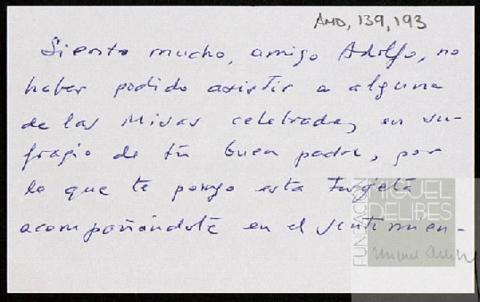 AMD, 139, 193
Siento mucho, amigo Adolfo, no
haber podido asistir a alguna
de las Misas celebradas en su-
fragio de tu buen padre, por
lo que te pongo esta tarjeta
acompañándote en el sentimien-
FUNDACIÓN
MIGUEL
DELIBES